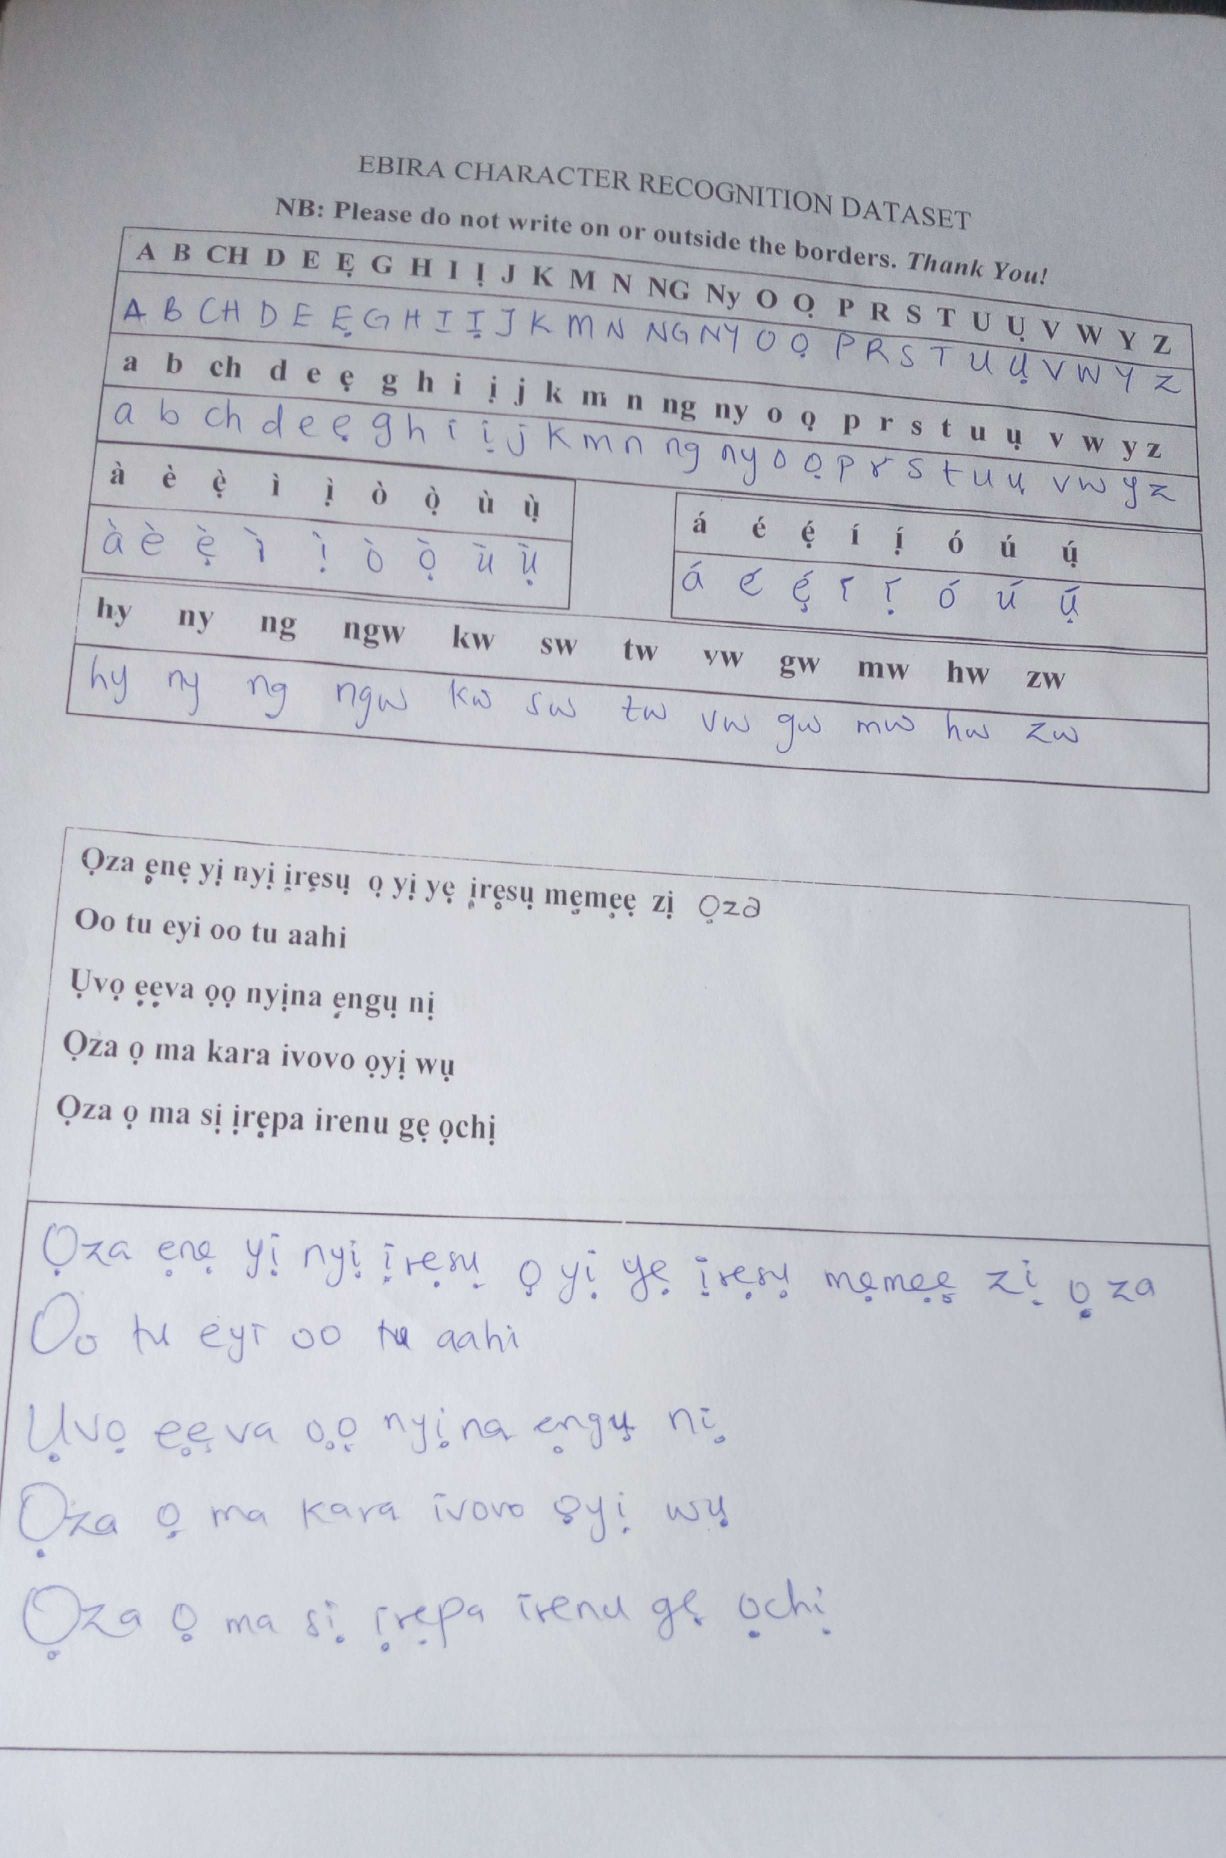 EBIRA CHARACTER RECOGNITION DATASET
NB: Please do not write on or outside the borders. Thank You!
A B CH D E Ẹ G H I Ị J K M N NG Ny O Ọ P R S T U Ụ V W Y Z
A B CH D E Ẹ G H I Ị J K M N NG NY O Ọ P R S T U Ụ V W Y Z
a b ch d e ẹ g h i ị j k m n ng ny o ọ p r s t u ụ v w y z
a b ch d e ẹ g h i ị j k m n ng ny o ọ p r s t u ụ v w y z
à è ẹ̀ ì ị̀ ò ọ̀ ù ụ̀
à è ẹ̀ ì ị̀ ò ọ̀ ù ụ̀
á é ẹ́ í ị́ ó ú ụ́
á é ẹ́ í ị́ ó ú ụ́
hy ny ng ngw kw sw tw vw gw mw hw zw
hy ny ng ngw kw sw tw vw gw mw hw zw
Ọza ẹnẹ yị nyị ịrẹsụ ọ yị yẹ ịrẹsụ mẹmẹẹ zị Ọza
Oo tu eyi oo tu aahi
Ụvọ ẹẹva ọọ nyịna ẹngụ nị
Ọza ọ ma kara ivovo ọyị wụ
Ọza ọ ma sị ịrẹpa irenu gẹ ọchị
Ọza ẹnẹ yị nyị ịrẹsụ ọ yị yẹ ịrẹsụ mẹmẹẹ zị ọza
Oo tu eyi oo tu aahi
Ụvọ ẹẹva ọọ nyịna ẹngụ nị
Ọza ọ ma kara ivovo ọyị wụ
Ọza ọ ma sị ịrẹpa irenu gẹ ọchị